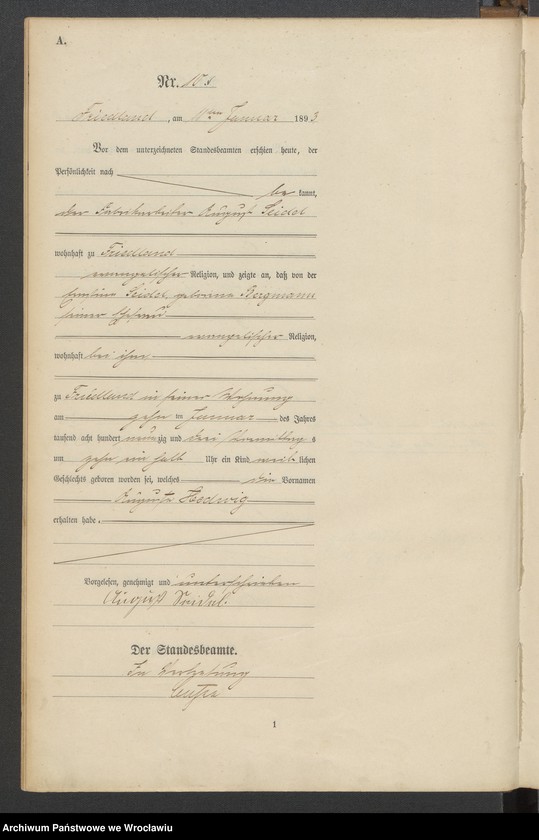 A.
Nr.
Friedland, am 11ten Januar 1893
Vor dem unterzeichneten Standesbeamten erschien heute, der
Persönlichkeit nach
be kannt,
der Fabrikarbeiter August Seidel
wohnhaft zu Friedland
evangelischer Religion, und zeigte an, daß von der
Seidel geborene Bergmann
seiner Ehefrau
evangelischer Religion,
wohnhaft bei ihm
zu Friedland in seiner Wohnung
am zehn ten Januar des Jahres
tausend acht hundert neunzig und drei Vormittags
um zehn ein halb Uhr ein Kind weiblichen
Geschlechts geboren worden sei, welches die Vornamen
Auguste Hedwig
erhalten habe.
Vorgelesen, genehmigt und unterschrieben
August Seidel.
Der Standesbeamte.
In Vertretung
1
Archiwum Państwowe we Wrocławiu